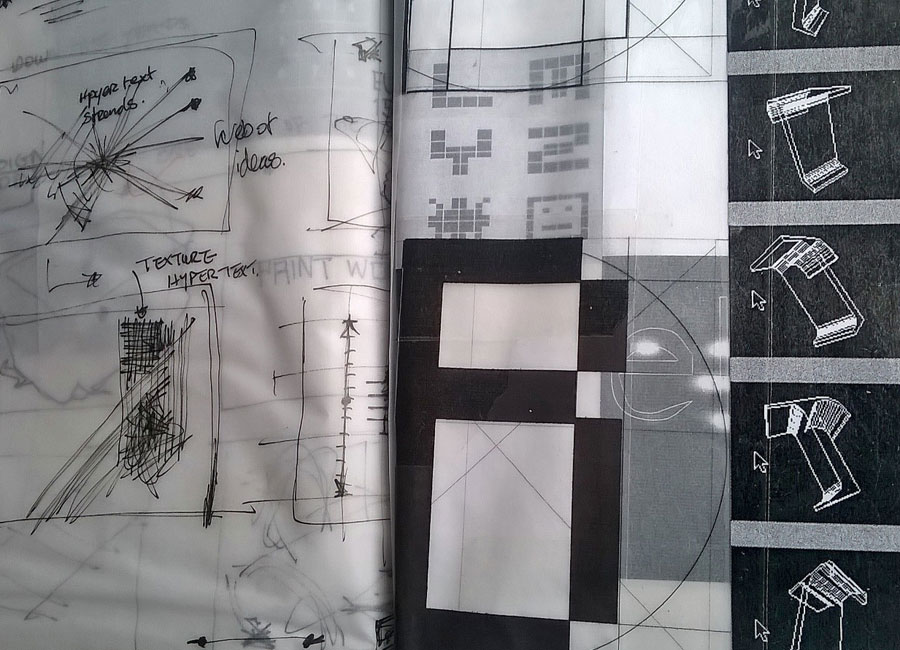 Hyper text
Strands.
Web of
ideas.
TEXTURE
HYPERTEXT.
PAINT WE
e